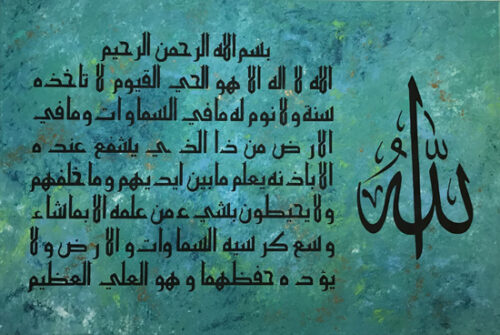 بسم الله الرحمن الرحيم
الله لا اله الا هو الحي القيوم لا تاخذه
سنة ولا نوم له مافي السماوات ومافي
الارض من ذا الذي يشفع عنده
الا باذنه يعلم مابين ايديهم وما خلفهم
ولا يحيطون بشيء من علمه الا بماشاء
وسع كرسيه السماوات والارض ولا
يؤده حفظهما وهو العلي العظيم
الله